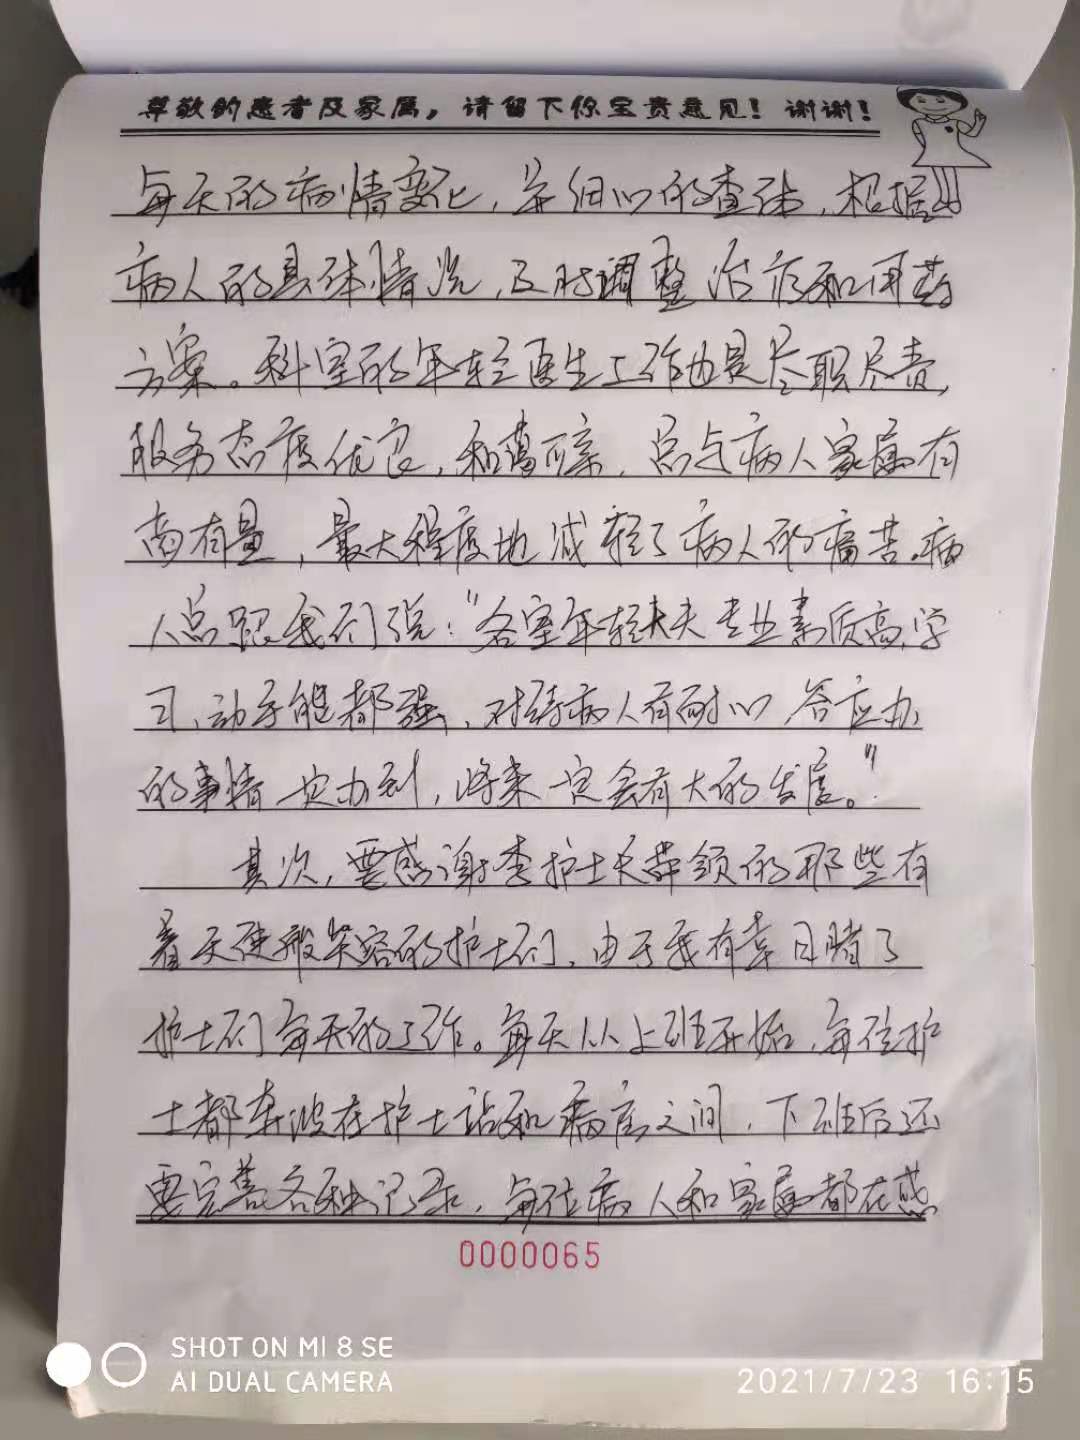 尊敬的患者及家属，请留下你宝贵意见！谢谢！
每天的病情变化，并细心的查体，根据
病人的具体情况，及时调整治疗和用药
方案。科室的年轻医生工作也是尽职尽责，
服务态度优良，和蔼可亲，总与病人家属有
商有量，最大程度地减轻了病人的痛苦。病
人总跟我们说：“各室年轻大夫专业素质高，学
习、动手能都强，对待病人有耐心 答应办
的事情一定办到，将来一定会有大的发展。”
其次，要感谢李护士长带领的那些有
着天使般笑容的护士们，由于我有幸目睹了
护士们每天的工作。每天从上班开始，每位护
士都奔波在护士站和病房之间，下班后还
要完善各种记录，每位病人和家属都在感
0000065
SHOT ON MI 8 SE
AI DUAL CAMERA
2021/7/23 16:15